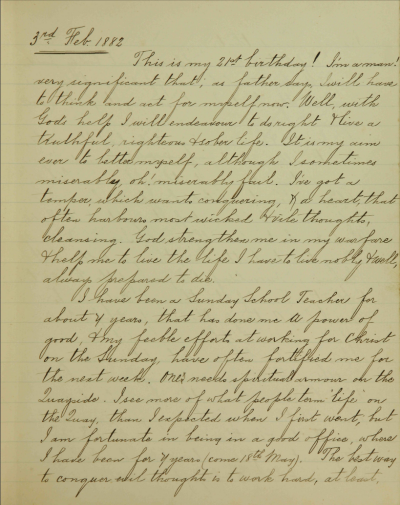 3rd Feb. 1882
This is my 21st birthday! I'm a man!
very significant that, as father says, I will have
to think and act for myself now. Well, with
God's help I will endeavour to do right & live a
truthful, righteous & sober life. It is my aim
ever to better myself, although I sometimes
miserably, oh! miserably fail. I've got a
temper, which wants conquering, & a heart, that
often harbours most wicked & vile thoughts,
cleansing. God strengthen me in my warfare
& help me to live the life I have to live nobly & well,
always prepared to die.
I have been a Sunday School Teacher for
about 4 years, that has done me a power of
good, & my feeble efforts at working for Christ
on the Sunday, have often fortified me for
the next week. One needs spiritual armour on the
Quayside. I see more of what people term "life" on
the Quay, than I expected when I first went, but
I am fortunate in being in a good office, where
I have been for 7 years (come 18th May). The best way
to conquer evil thoughts is to work hard, at least,